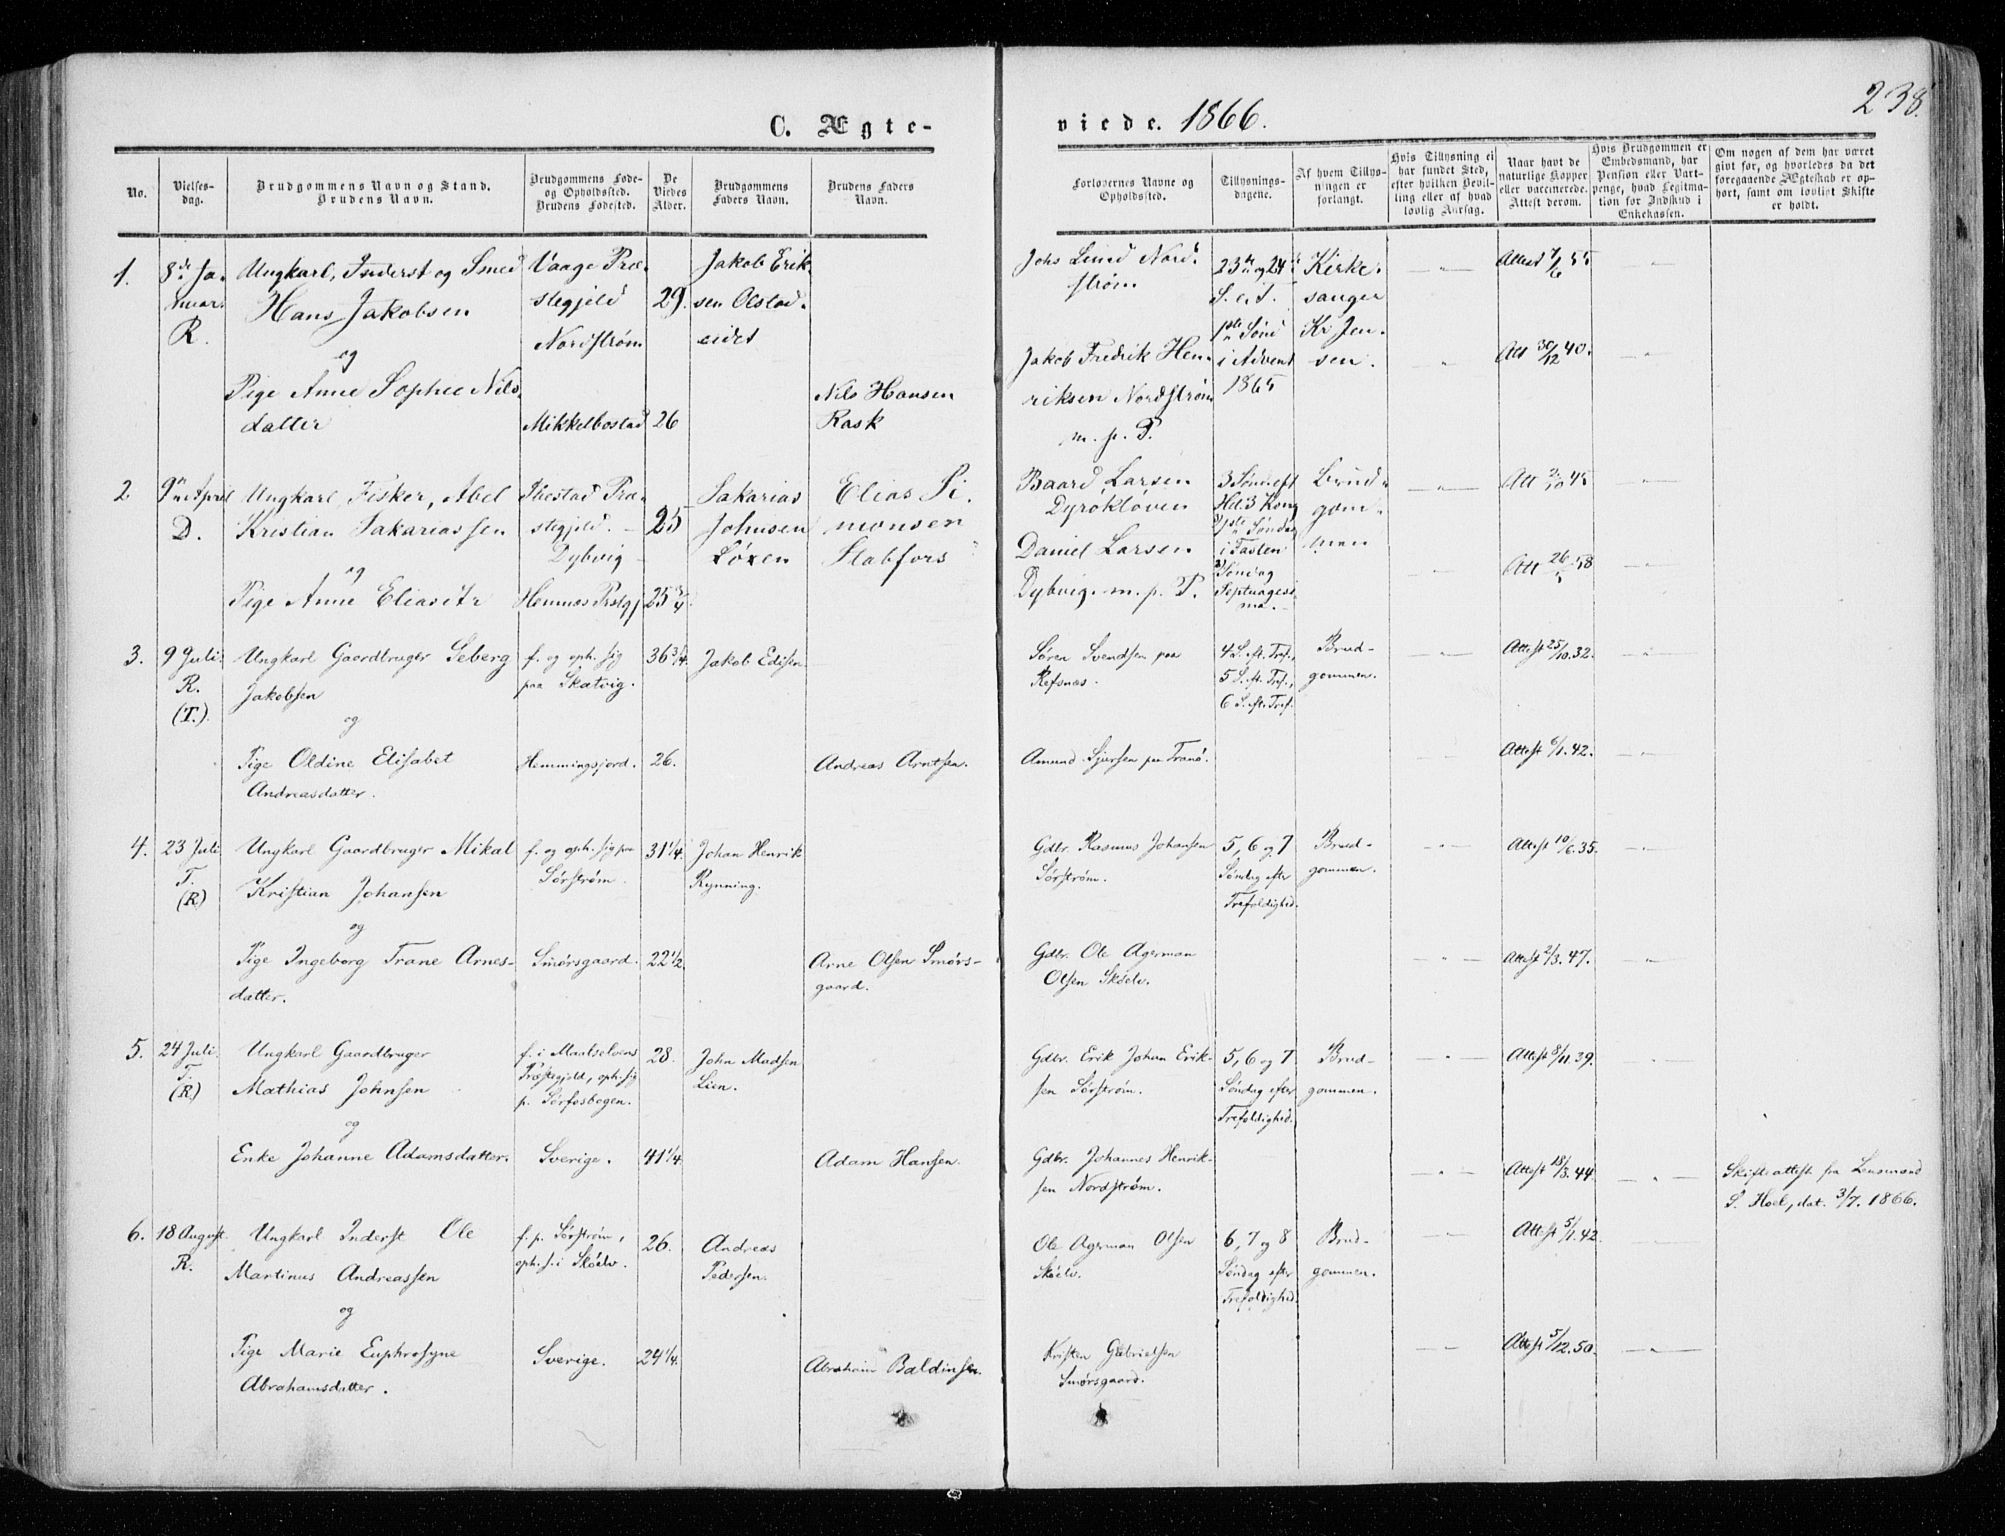 238
C. Ægte-
viede. 1866.
No.
Vielses-
dag.
Brudgommens Navn og Stand.
Brudens Navn.
Brudgommens Føde-
og Opholdssted.
Brudens Fødested.
De
Viedes
Alder.
Brudgommens
Faders Navn.
Brudens Faders
Navn.
Forlovernes Navne og
Opholdssted.
Tillysnings-
dagene.
Af hvem Tillys-
ningen er
forlangt.
Hvis Tillysning ei
har fundet Sted,
efter hvilken Bevil-
ling eller af hvad
lovlig Aarsag.
Naar havt de
naturlige Kopper
eller vaccinerede.
Attest derom.
Hvis Brudgommen er
Embedsmand, har
Pension eller Vart-
penge, hvad Legitima-
tion for Indskud i
Enkekassen.
Om nogen af dem har været
gift før, og hvorledes da det
foregaaende Ægteskab er op-
hørt, samt om lovligt Skifte
er holdt.
1.
8de Ja-
nuar.
R.
Ungkarl, Inderst og Smed
Hans Jakobsen
og
Pige Anne Sophie Nils-
datter
Vaage Præ-
stegjeld
Nordstrøm
Mikkelbostad
29.
26
Jakob Erik-
sen Olstad-
eidet
Nils Hansen
Rask
Johs Lund Nord-
strøm
Jakob Fredrik Hen-
riksen Nordstrøm
m. p. P.
23de og 24de
S. e. T.
1ste Sønd
i Advent
1865
Kirke-
sanger
Kr Jen-
sen.
Attest 7/6 55
Att 30/12 40.
2
9de April
D.
Ungkarl, Fisker, Abel
Kristian Sakariassen
og
Pige Anne Eliasdtr
Ibestad Præ-
stegjeld. -
Dybvig -
Hemnæs Prstgj
25
25 3/4
Sakarias
Johnsen
Løxen
Elias Si-
monsen
Stabfors
Baard Larsen
Dyrøkløven
Daniel Larsen
Dybvig. m. p. P.
3 Sønd. eft
Hel. 3 Kong
1ste Søndag
i Fasten
Søndag
Septuagesi
ma. -
Brud-
gom-
men
Att 45
Att 26/5 58
3.
9 Juli.
R.
(T.).
Ungkarl Gaardbruger Seberg
Jakobsen
og
Pige Oldine Elisabet
Andreasdatter.
f. og oph. sig
paa Skatvig.
Hemmingsjord.
36 3/4.
26.
Jakob Edissen
Andreas Arntsen.
Søren Svendsen paa
Refsnæs.
Amund Sjursen paa Tranø.
4 S. eft. Tref.,
5 S. ft. Tref.,
6 S. eft. Tref.
Brud-
gommen.
Attest 25/10.32.
Attest 6/1.42.
4.
23 Juli.
T.
(R)
Ungkarl Gaardbruger Mikal
Kristian Johansen
og
Pige Ingeborg Trane Arnes-
datter.
f. og oph. sig paa
Sørstrøm.
Smørsgaard.
31 1/4.
22 1/2.
Johan Henrik
Rynning.
Arne Olsen Smørs-
gaard.
Gdbr. Rasmus Johansen
Sørstrøm.
Gdbr. Ole Agerman
Olsen Skøelv.
5, 6 og 7
Søndag efter
Trefoldighed.
Brud-
gommen.
Attest 10/6.35.
Attest 2/3.47.
5.
24 Juli.
T.
(R)
Ungkarl Gaardbruger
Mathias Johnsen
og
Enke Johanne Adamsdatter.
f. i Maalselvens
Præstegjeld, oph. sig
p. Sørfosbogen.
Sverige.
28.
41 1/4
John Madsen
Lien.
Adam Hansen.
Gdbr. Erik Johan Erik-
sen Sørstrøm.
Gdbr. Johannes Henrik-
sen Nordstrøm.
5, 6 og 7
Søndag efter
Trefoldighed.
Brud-
gommen.
Attest 8/11.39.
Attest 18/3.44.
Skifteattest fra Lensmand
S. Hoel, dat. 3/7. 1866.
6.
18 August.
R.
Ungkarl Inderst Ole
Martinus Andreassen
og
Pige Marie Euphrosyne
Abrahamsdatter.
f. p. Sørstrøm,
oph. s. i Skøelv.
Sverige.
26.
24 1/4.
Andreas
Pedersen.
Abraham Baldinsen.
Ole Agerman Olsen
Skøelv.
Kristen Gabrielsen
Smørsgaard.
6, 7 og 8
Søndag efter
Trefoldighed.
Brud-
gommen.
Attest 5/1.42.
Attest 5/12.50.